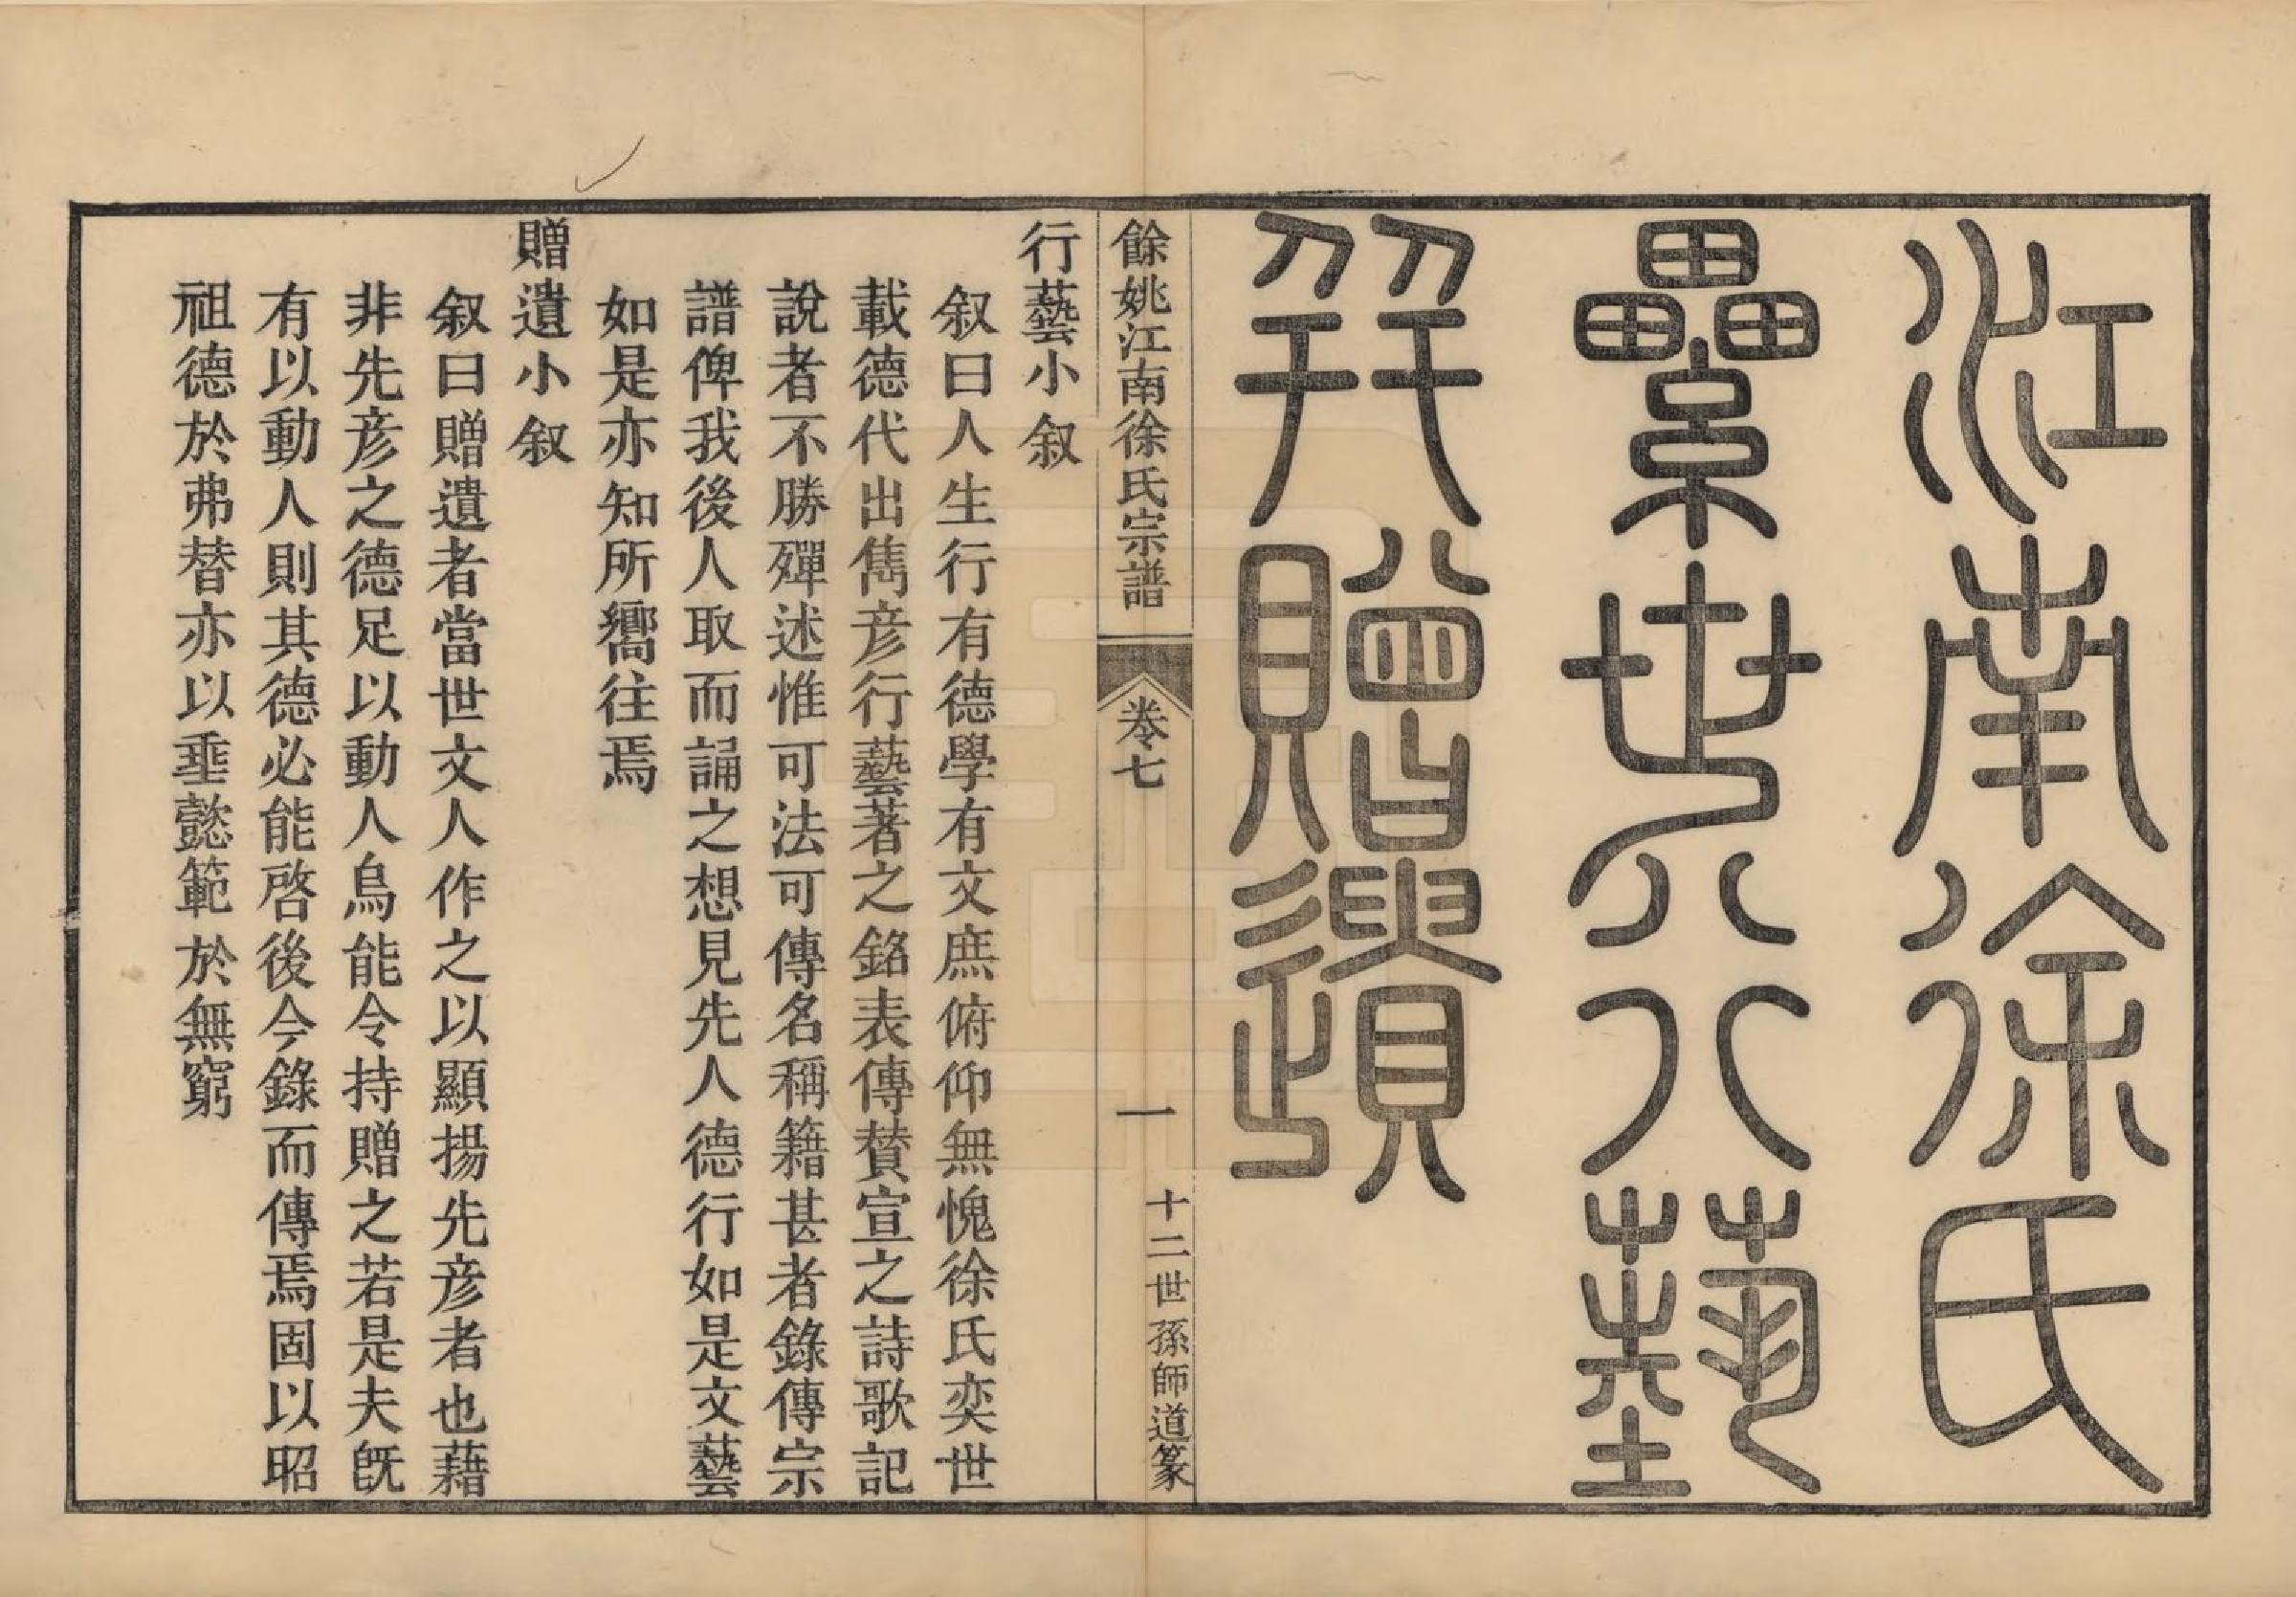 江南徐氏
纍世行藝
并贈遺
十二世孫師道篆
餘姚江南徐氏宗譜
卷七
一
行藝小叙
叙曰人生行有德學有文庶俯仰無愧徐氏奕世
載德代出雋彦行藝著之銘表傳賛宣之詩歌記
說者不勝殫述惟可法可傳名稱籍甚者錄傳宗
譜俾我後人取而誦之想見先人德行如是文藝
如是亦知所嚮往焉
贈遺小叙
叙曰贈遺者當世文人作之以顯揚先彦者也藉
非先彦之德足以動人烏能令持贈之若是夫旣
有以動人則其德必能啓後今錄而傳焉固以昭
祖德於弗替亦以埀懿範於無窮